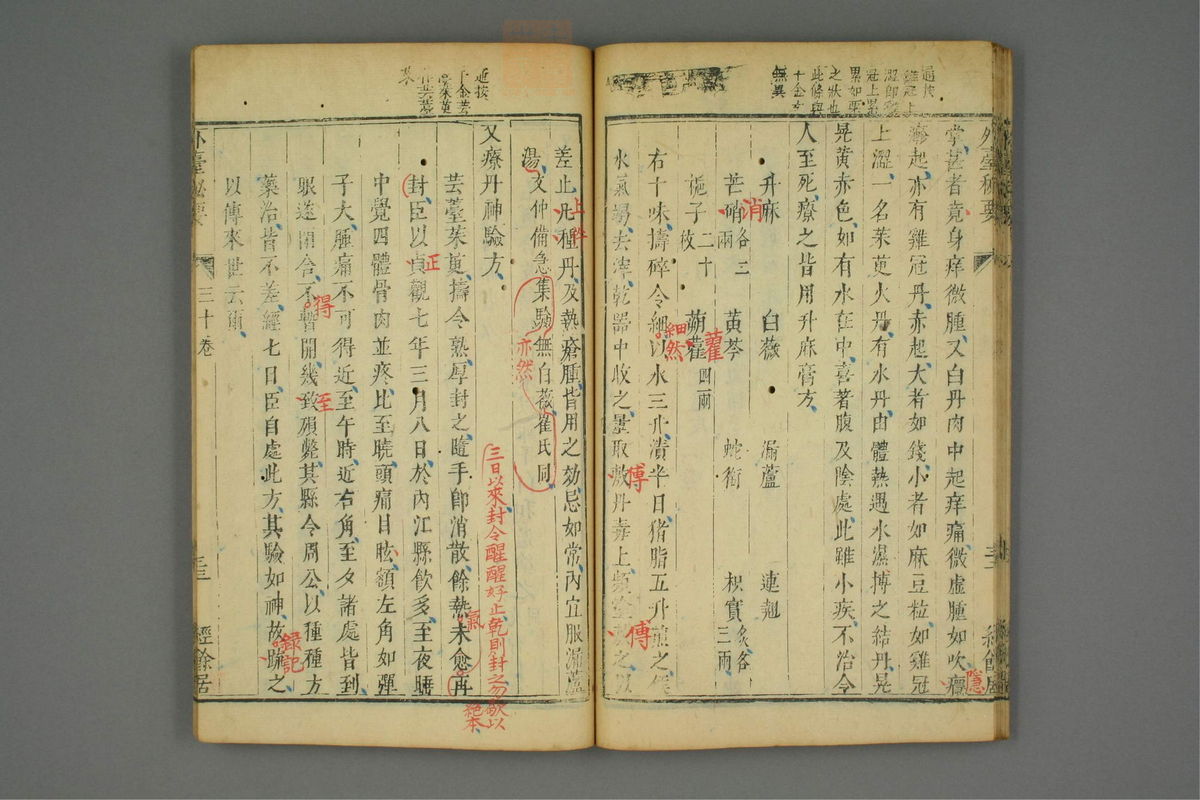 掌甚者竟身痒微腫又白丹肉中起痒痛微虛腫如吹癮
疹起亦有雞冠丹赤起大者如錢小者如麻豆粒如雞冠
上澀一名茱萸火丹有水丹由體熱遇水濕搏之結丹晃
晃黃赤色如有水在中喜著腹及陰處此雖小疾不治令
人至死療之皆用升麻膏方
升麻 白薇 漏蘆 連翹
芒硝各三兩 黃芩 蛇銜 枳實炙各三兩
梔子二十枚 蒴藋四兩
右十味擣碎令細以水三升漬半日猪脂五升煎之候
水氣竭去滓乾器中收之量取敷丹毒上頻之以
消
藋
細然
傅
傅
隱
此條與
千金方
無異
外臺秘要
差止凡種丹及熱瘡腫皆用之効忌如常內宜服漏蘆
湯文仲備急集驗無白薇崔氏同
又療丹神驗方
芸薹菜萸擣令熟厚封之隨手卽消散餘熱未愈再
封臣以貞觀七年三月八日於內江縣飲多至夜睡
中覺四體骨肉並疼比至曉頭痛目眩額左角如彈
子大腫痛不可得近至午時近右角至夕諸處皆到
眼遂閉合不暫開幾致殞斃其縣令周公以種種方
藥治皆不差經七日臣自處此方其驗如神故疏之
以傳來世云爾
亦然
三日以來封令醒醒好止乾則封之勿歇以
絕本
氣
正
得
至
錄記
外臺秘要
三十卷
經餘居